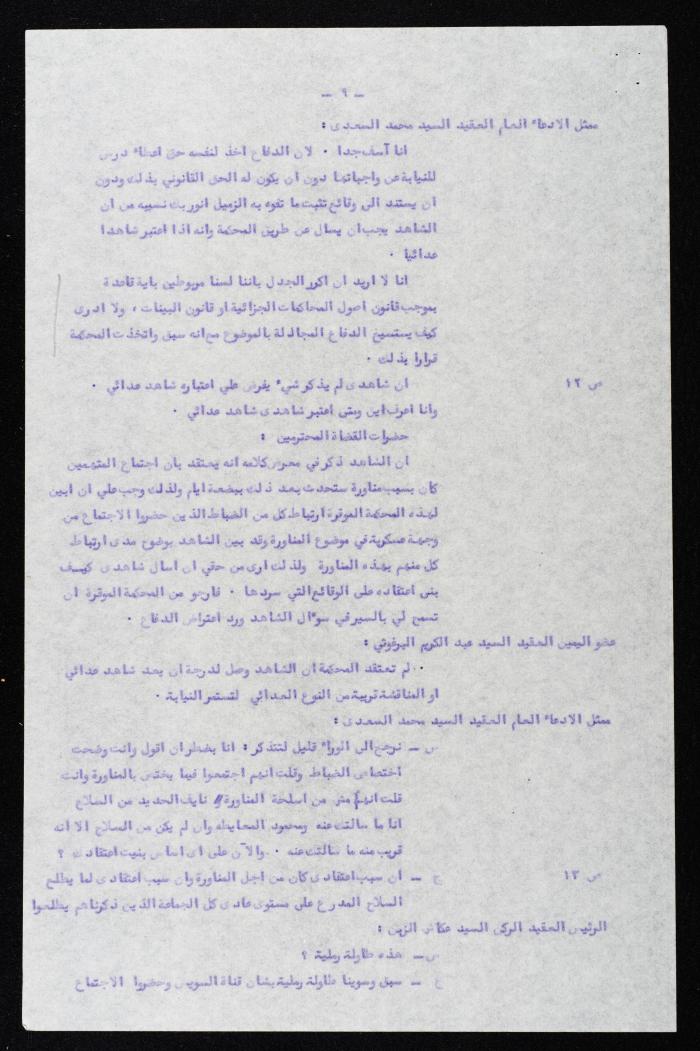 - ٩ -
ممثل الادعاء العام العقيد السيد محمد السعدى :
انا آسف جدا . لان الدفاع اخذ لنفسه حق اعطاء درس
للنيابة عن واجباتها دون ان يكون له الحق القانوني بذلك ودون
ان يستند الى وقائع تثبت ما تفوه به الزميل انور بك نسيبه من ان
الشاهد يجب ان يسال عن طريق المحكمة وانه اذا اعتبر شاهدا
عدائيا .
انا لا اريد ان اكرر الجدل باننا لسنا مربوطين باية قاعدة
بموجب قانون اصول المحاكمات الجزائية او قانون البينات ، ولا ادرى
كيف يستسيغ الدفاع المجادلة بالموضوع مع انه سبق واتخذت المحكمة
قرارا بذلك .
ص ١٢
ان شاهدى لم يذكر شيء يفرض علي اعتباره شاهد عدائي .
وانا اعرف اين ومتى اعتبر شاهدى شاهد عدائي .
حضرات القضاة المحترمين :
ان الشاهد ذكر في معرض كلامه انه يعتقد بان اجتماع المتهمين
كان بسبب مناورة ستحدث بعد ذلك ببضعة ايام ولذلك وجب علي ان ابين
لهذه المحكمة الموقرة ارتباط كل من الضباط الذين حضروا الاجتماع من
وجهة عسكرية في موضوع المناورة وقد بين الشاهد بوضوح مدى ارتباط
كل منهم بهذه المناورة ولذلك ارى من حقي ان اسال شاهدى كيف
بنى اعتقاده على الوقائع التي سردها . فارجو من المحكمة الموقرة ان
تسمح لي بالسير في سوءال الشاهد ورد اعتراض الدفاع .
عضو اليمين العقيد السيد عبد الكريم البرغوثي :
.. لم تعتقد المحكمة ان الشاهد وصل لدرجة ان يعد شاهد عدائي
او المناقشة قريبة من النوع العدائي لتستمر النيابة .
ممثل الادعاء العام العقيد السيد محمد السعدى :
س - نرجع الى الوراء قليل لتتذكر : انا بضطر ان اقول وانت وضحت
اختصاص الضباط وقلت انهم اجتمعوا فيما يختص بالمناورة وانت
قلت انهم من اسلحة المناورة نايف الحديد من السلاح
انا ما سالتك عنه ومحمود المعايطه وان لم يكن من السلاح الا انه
قريب منه ما سالتك عنه . والآن على اى اساس بنيت اعتقادك ؟
ص ١٣
ج - ان سبب اعتقادى كان من اجل المناورة وان سبب اعتقادى لما يطلع
السلاح المدرع على مستوى عادى كل الجماعة الذين ذكرناهم يطلعوا
الرئيس العقيد الركن السيد عكاش الزبن :
س - هذه طاولة رملية ؟
ج - سبق وسوينا طاولة رملية بشان قناة السويس وحضروا الاجتماع